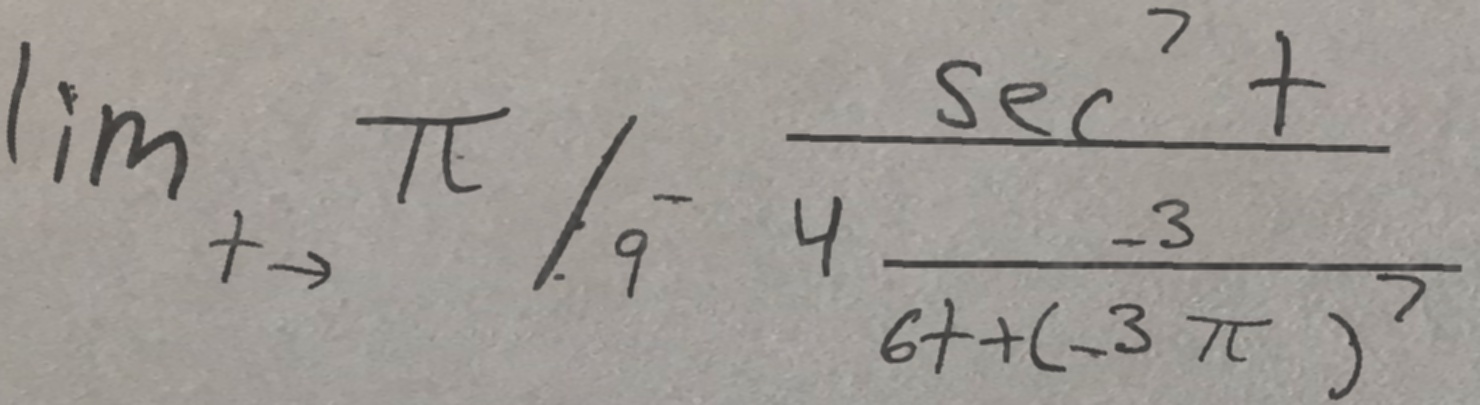 lim t→ π/9⁻ sec⁷ t / 4 -3 / 6t+(-3π)⁷